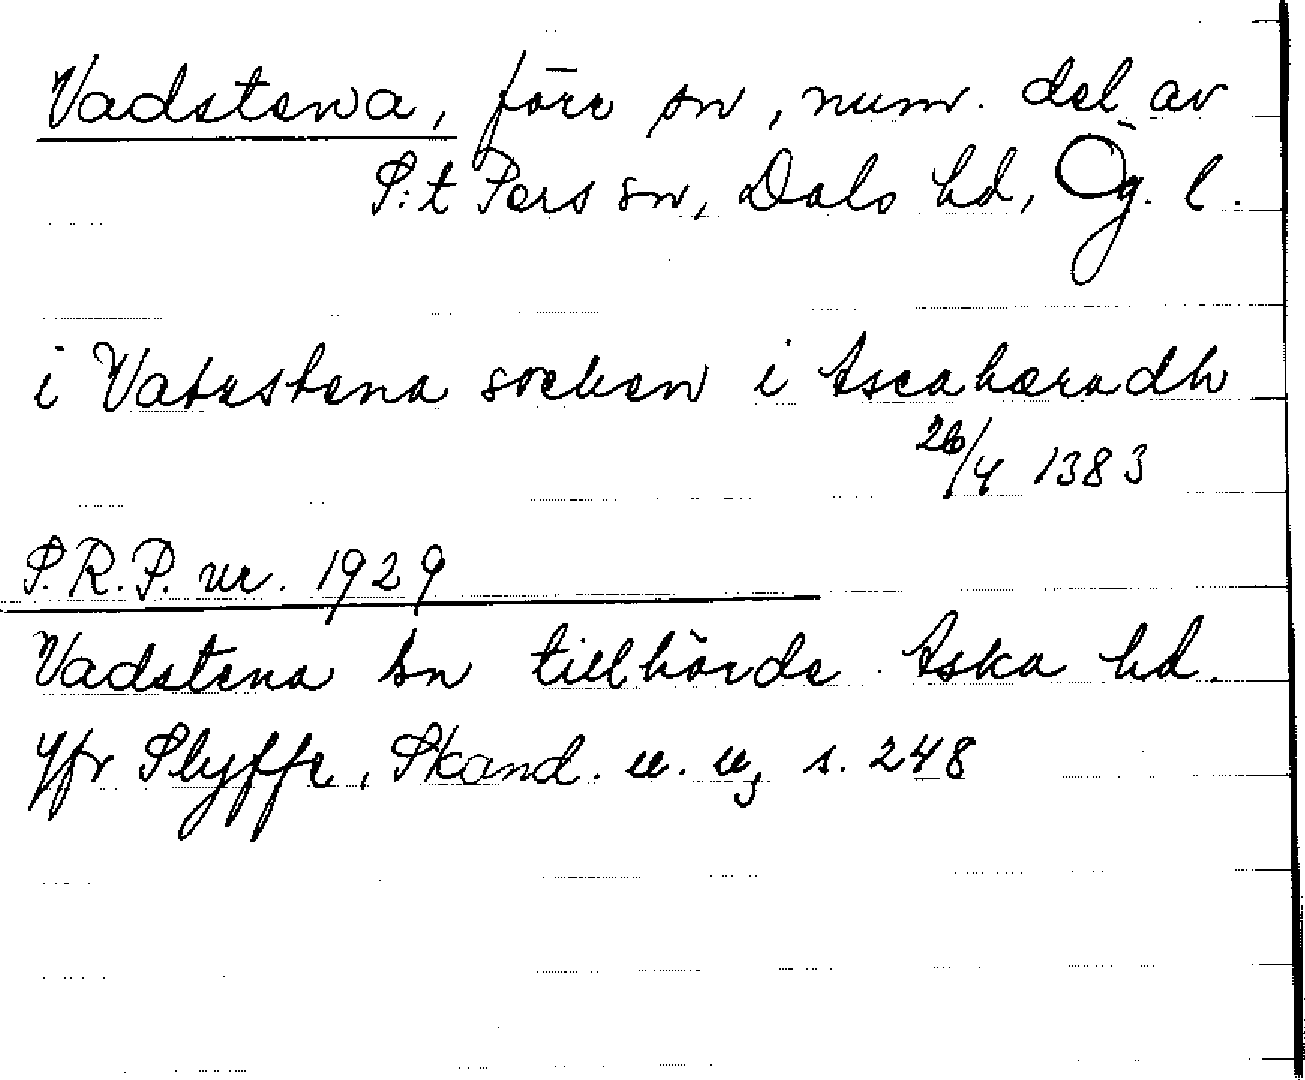 Vadstena, förr sn, num. del av
S:t Pers sn, Dals hd, Ög. l.
i Vatzstena socken i Ascahæradh
26/4 1383
S.R.P. nr. 1929
Vadstena sn tillhörde Aska hd.
Jfr Styffe, Skand. u. u, s. 248